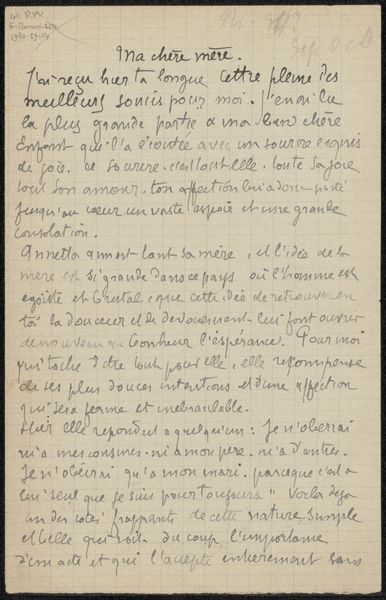 Ma chère mère.
J'ai reçu hier ta longue lettre pleine des
meilleurs soucis pour moi. J'en ai lu
la plus grande partie a ma bien chère
Enfant qui l'a écoutée avec un sourire exquis
de joie. Ce sourire c'est tout elle. toute sa joie
tout son amour. ton affection lui a donc porté
jusqu'au cœur un vaste espoir et une grande
consolation.
Annetta aimait tant sa mère, et l'idée de la
mère est si grande dans ce pays où l'homme est
egoïste et brutal, que cette idée de retrouver en
toi la douceur et le devouement lui font ouvrir
de nouveau au bonheur l'espérance. Pour moi
qui tache d'être tout pour elle, elle recompense
de ses plus douces intentions et d'une affection
qui sera ferme et inebranlable.
Hier elle repondit a quelqu'un: Je n'obeirai
ni a mes cousines, ni a mon père, ni a d'autres.
Je n'obéirai qu'a mon mari. parceque c'est a
lui seul que je suis pour toujours" Voila deja
un des cotés frappants de cette nature simple
et belle qui voit du coup l'importance
d'un acte et qui l'accepte entierement sans